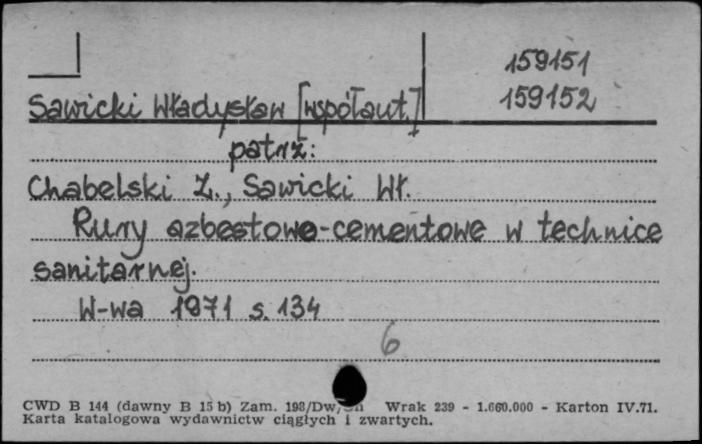 159151
159152
Sawicki Władysław [współaut.]
patrz:
Chabelski Z., Sawicki Wł.
Rury azbestowo-cementowe w technice
sanitarnej.
W-wa 1971 s. 134
6
CWD B 144 (dawny B 15 b) Zam. 198/Dw/ Wrak 239 - 1.660.000 - Karton IV.71.
Karta katalogowa wydawnictw ciągłych i zwartych.